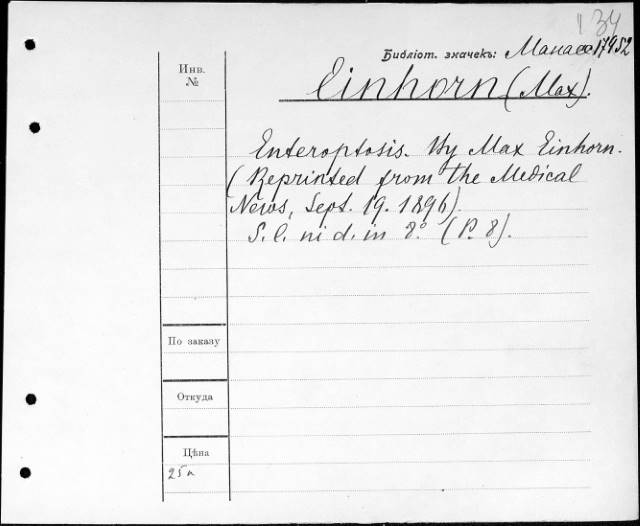 134
Библіот. значекъ: Манасс 17952
Инв.
№
Einhorn (Max).
Enteroptosis. By Max Einhorn.
(Reprinted from the Medical
News, Sept. 19. 1896).
S. l. ni d. in 8° (P. 8).
По заказу
Откуда
Цѣна
25 к